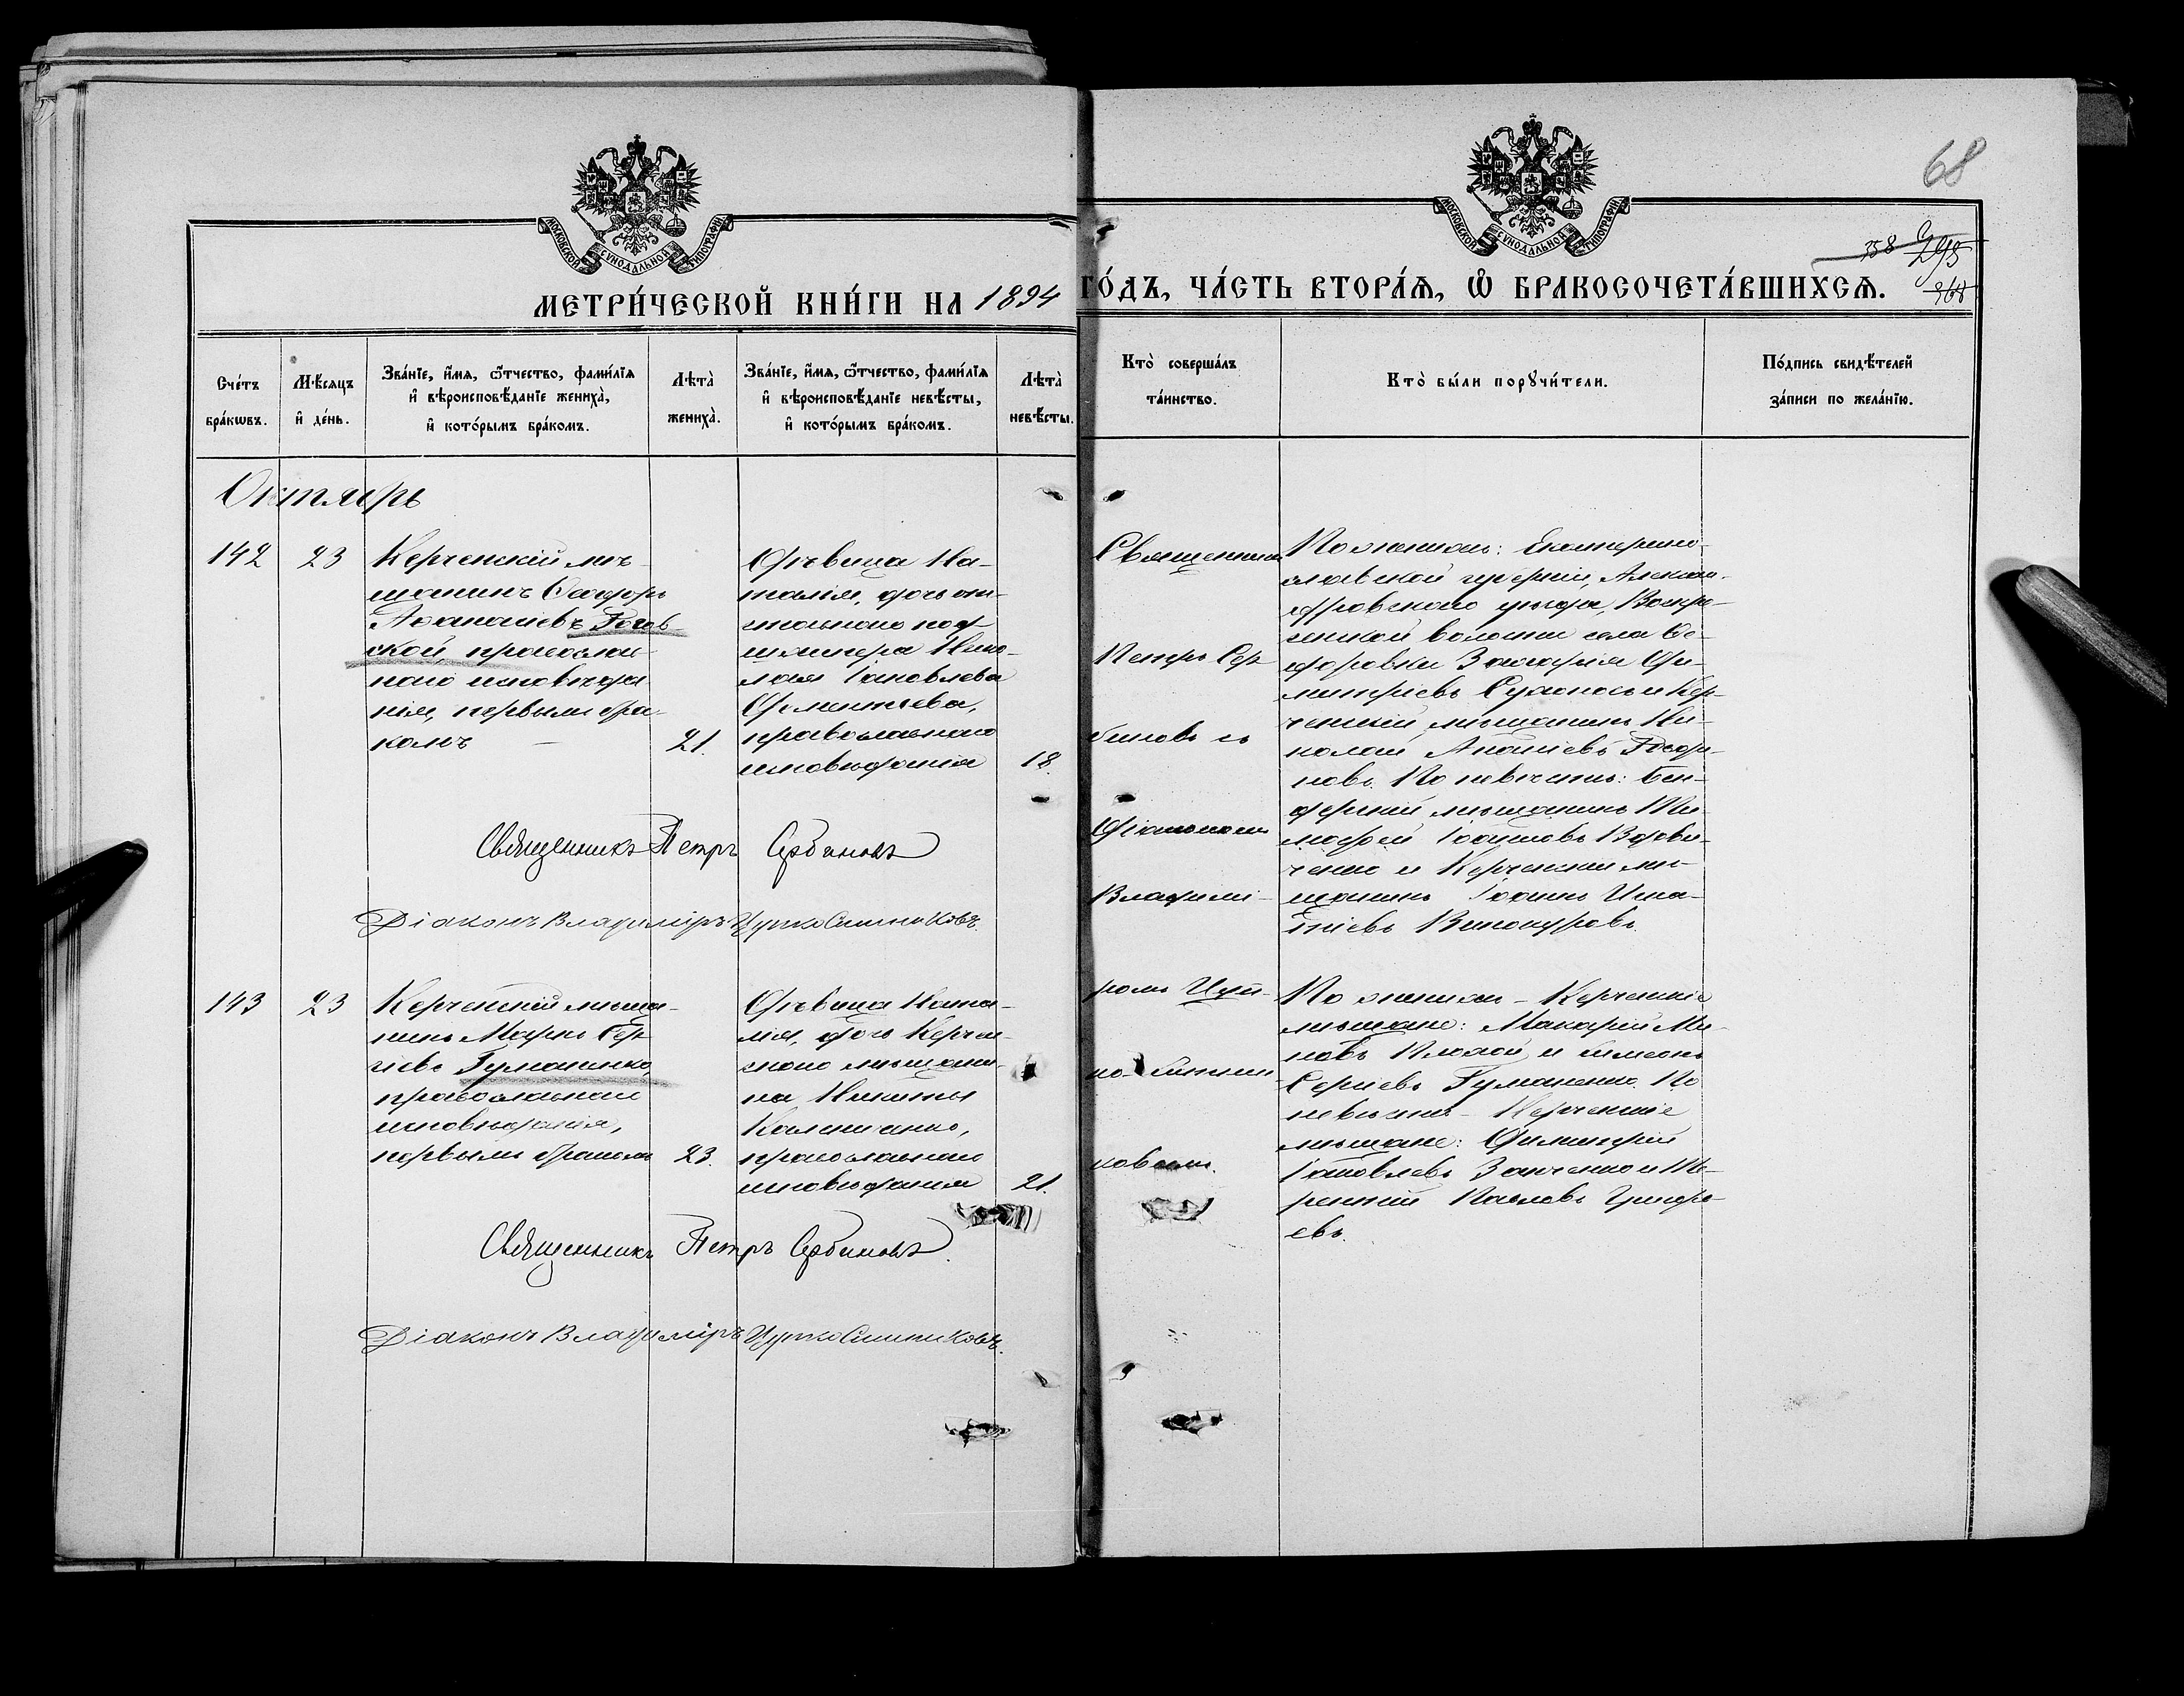 68
МОСКОВСКОЙ СѴНОДАЛЬНОЙ ТИПОГРАФІИ
МОСКОВСКОЙ СѴНОДАЛЬНОЙ ТИПОГРАФІИ
358 295
368
МЕТРИ́ЧЕСКОЙ КНИ́ГИ НА 1894 ГО́ДЪ, ЧА́СТЬ ВТОРА́Ѧ, Ѡ БРАКОСОЧЕТА́ВШИХСѦ.
Сче́тъ бра́кѡвъ.
Мѣ́сяцъ и҆ де́нь.
Зва́нїе, и҆́мя, ѻ҆́тчество, фами́лїя
и҆ вѣроисповѣ́данїе жениха̀,
и҆ кото́рымъ бра́комъ.
Лѣта̀ жениха̀.
Зва́нїе, и҆́мя, ѻ҆́тчество, фами́лїя
и҆ вѣроисповѣ́данїе невѣ́сты,
и҆ кото́рымъ бра́комъ.
Лѣта̀ невѣ́сты.
Кто̀ соверша́лъ та́инство.
Кто̀ бы́ли порꙋчи́тели.
По́дпись свидѣ́телей за́писи по жела́нїю.
Октябрь
142
23
Керченскій мѣ-
щанинъ Ѳеодоръ
Аѳанасіевъ Гогов-
ской, православ-
наго исповѣда-
нія, первымъ бра-
комъ
21.
Дѣвица На-
талія, дочь от-
ставного под-
шкипера Нико-
лая Іаковлева
Дементьева,
православнаго
исповѣданія
18.
Священникъ
Петръ Сер-
биновъ съ
Діакономъ
Владимі-
ромъ Цур-
ко-Синни-
ковымъ.
По женихѣ: Екатерино-
славской губерніи, Алексан-
дровскаго уѣзда, Воскре-
сенской волости села Ѳе-
доровки Захарія Ди-
митріевъ Сухоносъ и Кер-
ченскій мѣщанинъ Ни-
колай
новъ. По невѣстѣ: Бен-
дерскій мѣщанинъ Ти-
моѳей Іоанновъ Вдови-
ченко и Керченскій мѣ-
щанинъ Іоаннъ Игна-
тіевъ Винокуровъ.
Священникъ Петръ Сербиновъ
Діаконъ Владиміръ Цурко Синниковъ.
143
23
Керченскій мѣща-
нинъ Маркъ Сер-
гіевъ Гуманенко,
православнаго
исповѣданія,
первымъ бракомъ
23.
Дѣвица Ната-
лія, дочь Керчен-
скаго мѣщани-
на Никиты
Калениченко,
православнаго
исповѣданія
21.
По женихѣ - Керченскіе
мѣщане: Макарій Ми-
новъ Плохой и Симеонъ
Сергіевъ Гуманенко. По
невѣстѣ - Керченскіе
мѣщане: Димитрій
Іаковлевъ Занченко и Те-
рентій Павловъ Григорь-
евъ.
Священникъ Петръ Сербиновъ.
Діаконъ Владиміръ Цурко Синниковъ.